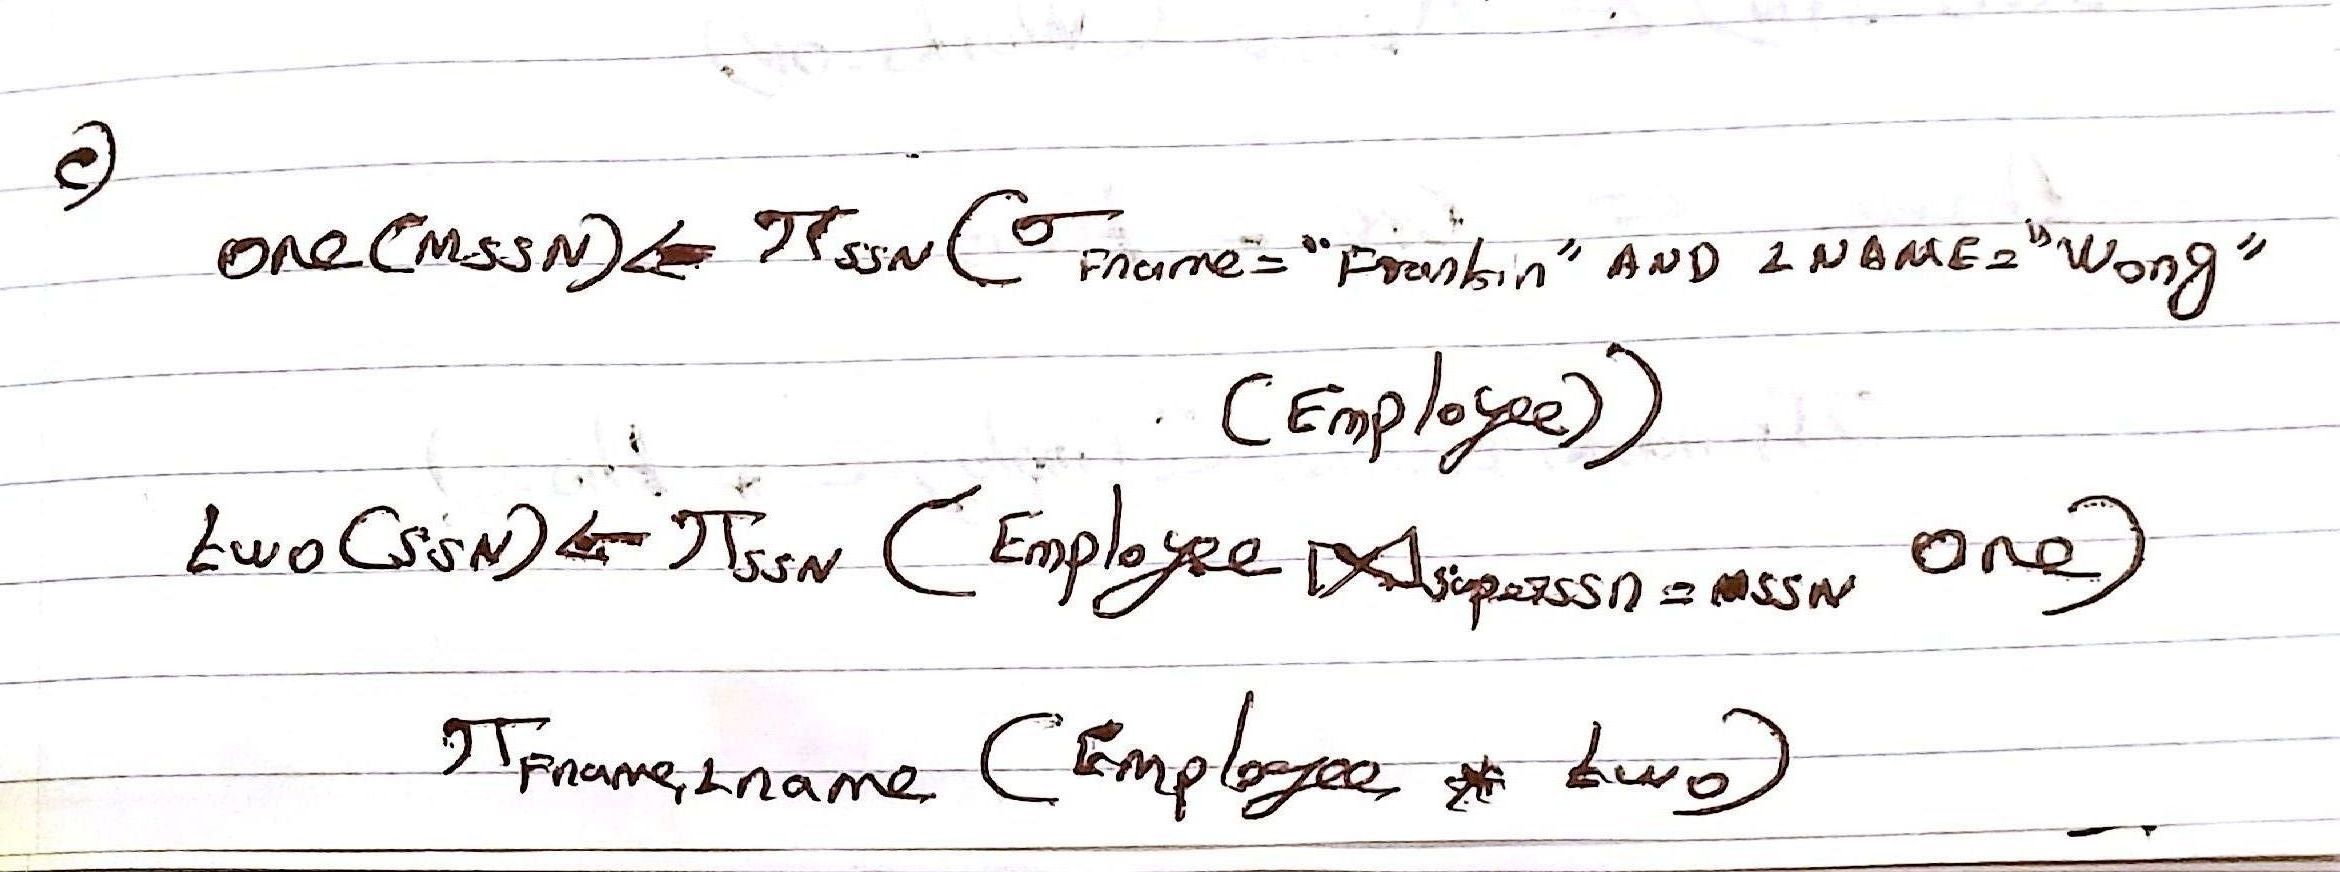 c)
one(MSSN)← πSSN(σFname="Frankin" AND LNAME="Wong"
(Employee))
two(SSN)← πSSN (Employee ⋈superssn=MSSN one)
πFname,Lname (Employee * two)